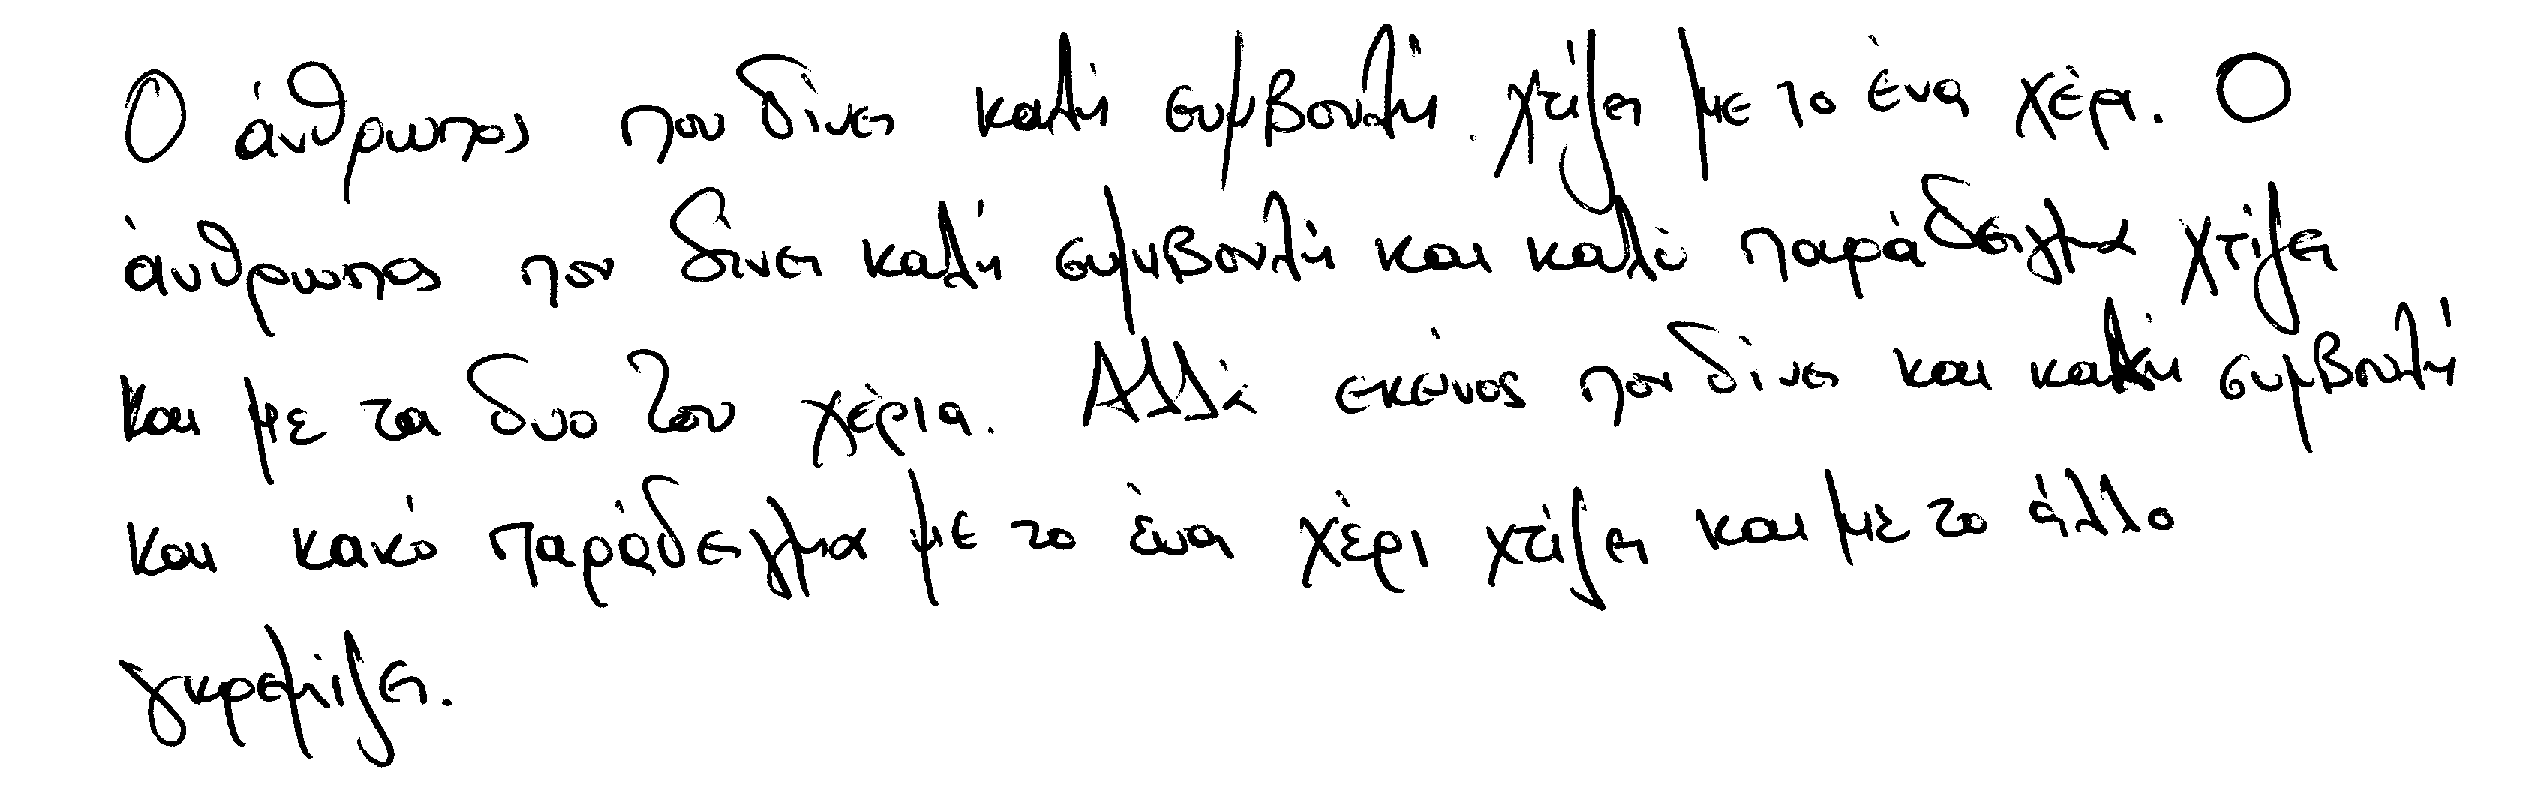 Ο άνθρωπος που δίνει καλή συμβουλή. χτίζει με το ένα χέρι. Ο
άνθρωπος που δίνει καλή συμβουλή και καλό παράδειγμα χτίζει
και με τα δυο του χέρια. Αλλά εκείνος που δίνει και καλή συμβουλή
και κακό παράδειγμα με το ένα χέρι χτίζει και με το άλλο
γκρεμίζει.